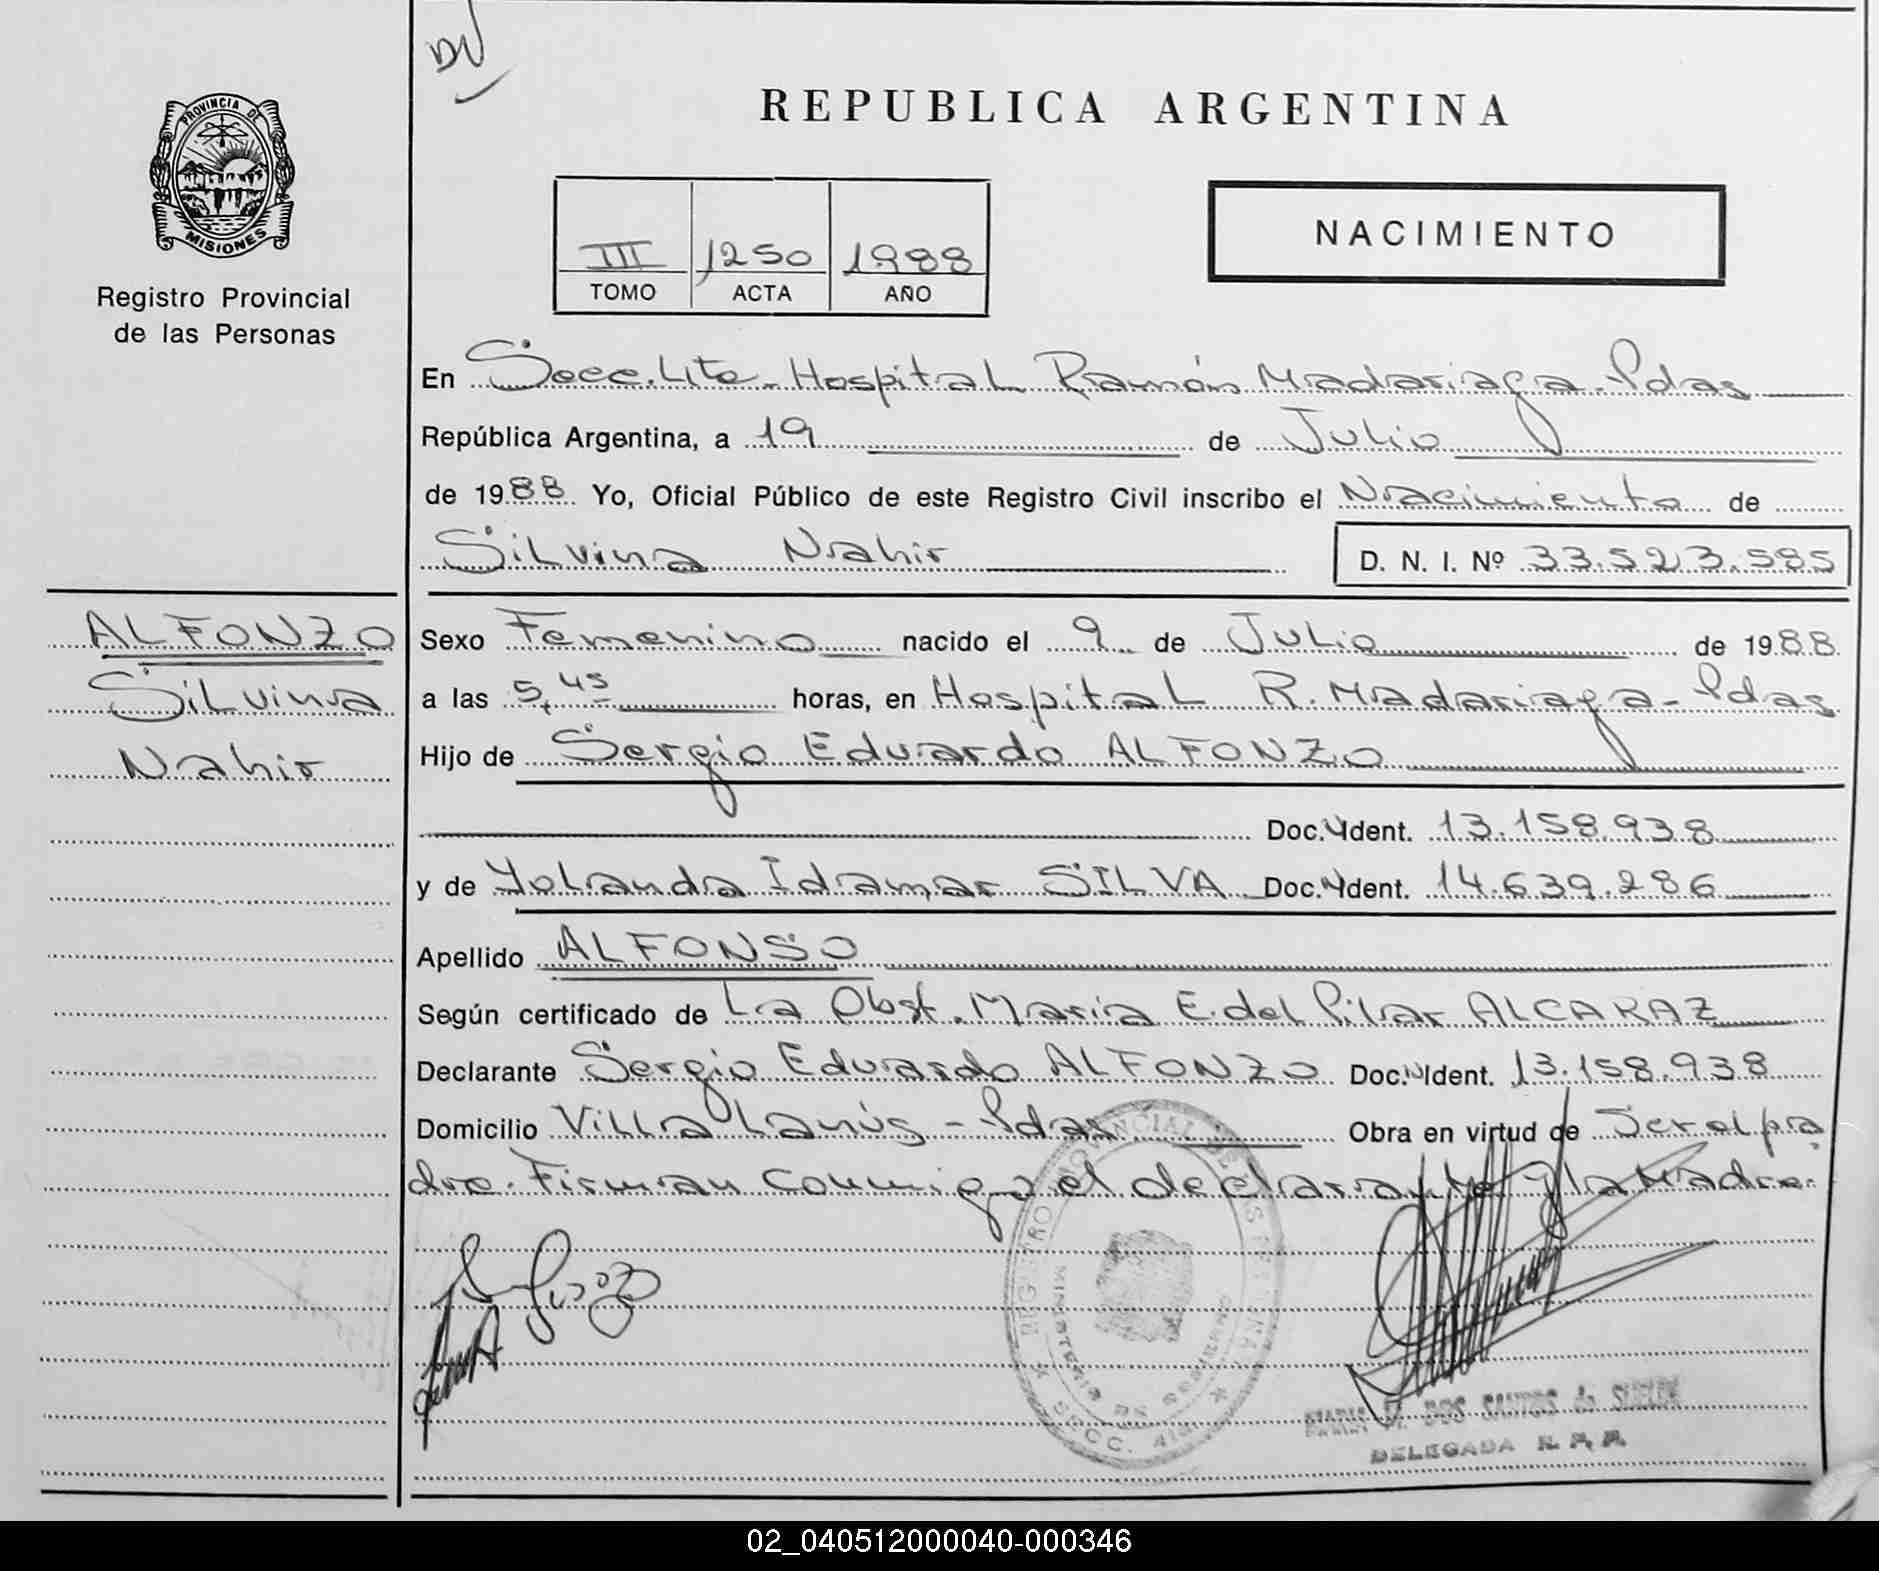 DV
PROVINCIA DE
MISIONES
Registro Provincial
de las Personas
REPUBLICA ARGENTINA
III 1250 1988
TOMO ACTA AÑO
NACIMIENTO
En Secc. Lite. Hospital Ramón Madariaga - Pdas
República Argentina, a 19 de Julio
de 1988 Yo, Oficial Público de este Registro Civil inscribo el Nacimiento de
Silvina Nahir D. N. I. Nº 33.523.585
ALFONZO
Silvina
Nahir
Sexo Femenino nacido el 9 de Julio de 1988
a las 5,45 horas, en Hospital R. Madariaga - Pdas
Hijo de Sergio Eduardo ALFONZO
Doc. Ident. 13.158.938
y de Yolanda Idamar SILVA Doc. Ident. 14.639.286
Apellido ALFONSO
Según certificado de La Obst. María E. del Pilar ALCARAZ
Declarante Sergio Eduardo ALFONZO Doc. Ident. 13.158.938
Domicilio Villa Lanús - Pdas Obra en virtud de Ser el pa
dre. Firman conmigo el declarante y la Madre.
REGISTRO PROVINCIAL DE LAS PERSONAS
MINISTERIO DE GOBIERNO
SECC.
DOS SANTOS de
DELEGADA R. P. P.
02_040512000040-000346